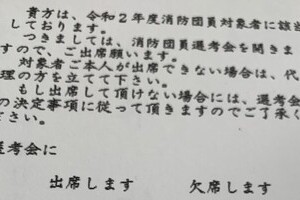 貴方は、令和２年度消防団員対象者に該当
しております。
つきましては、消防団員選考会を開きま
すので、ご出席願います。
対象者ご本人が出席できない場合は、代
理の方を立てて下さい。
もし出席して頂けない場合には、選考会
の決定事項に従って頂きますのでご了承く
ださい。
選考会に
出席します　　欠席します